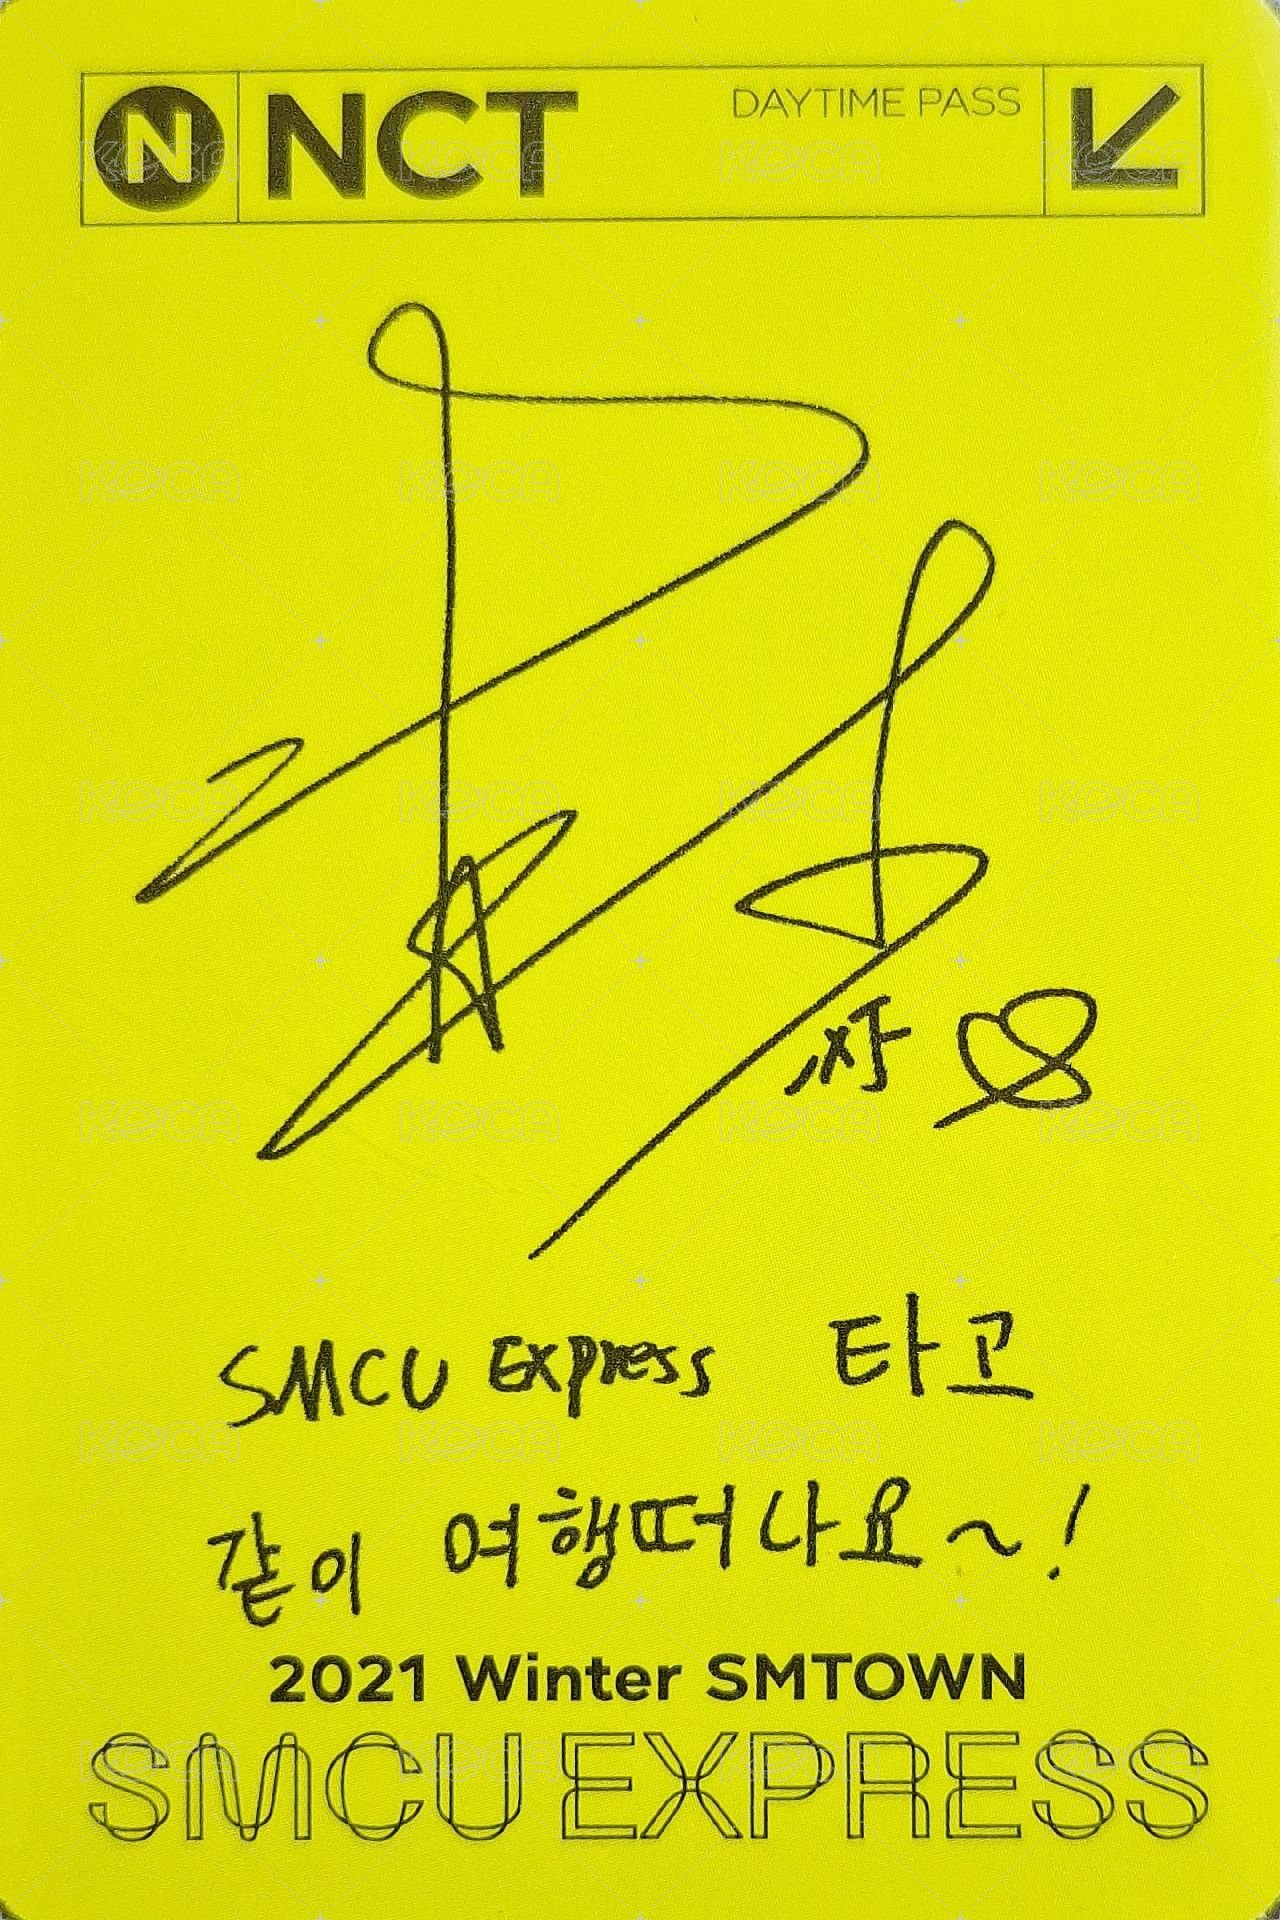 N NCT DAYTIME PASS
SMCU Express 타고
같이 여행떠나요~!
2021 Winter SMTOWN
SMCU EXPRESS
KOCA